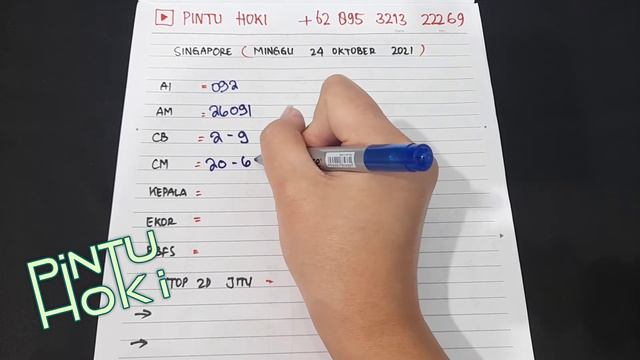 PINTU HOKI +62 895 3213 22269
SINGAPORE (MINGGU 24 OKTOBER 2021)
AI = 092
AM = 26091
CB = 2 - 9
CM = 20 - 6
KEPALA =
EKOR =
BBFS =
TOP 2D JITU =
→
→
PiNTU
HoKi